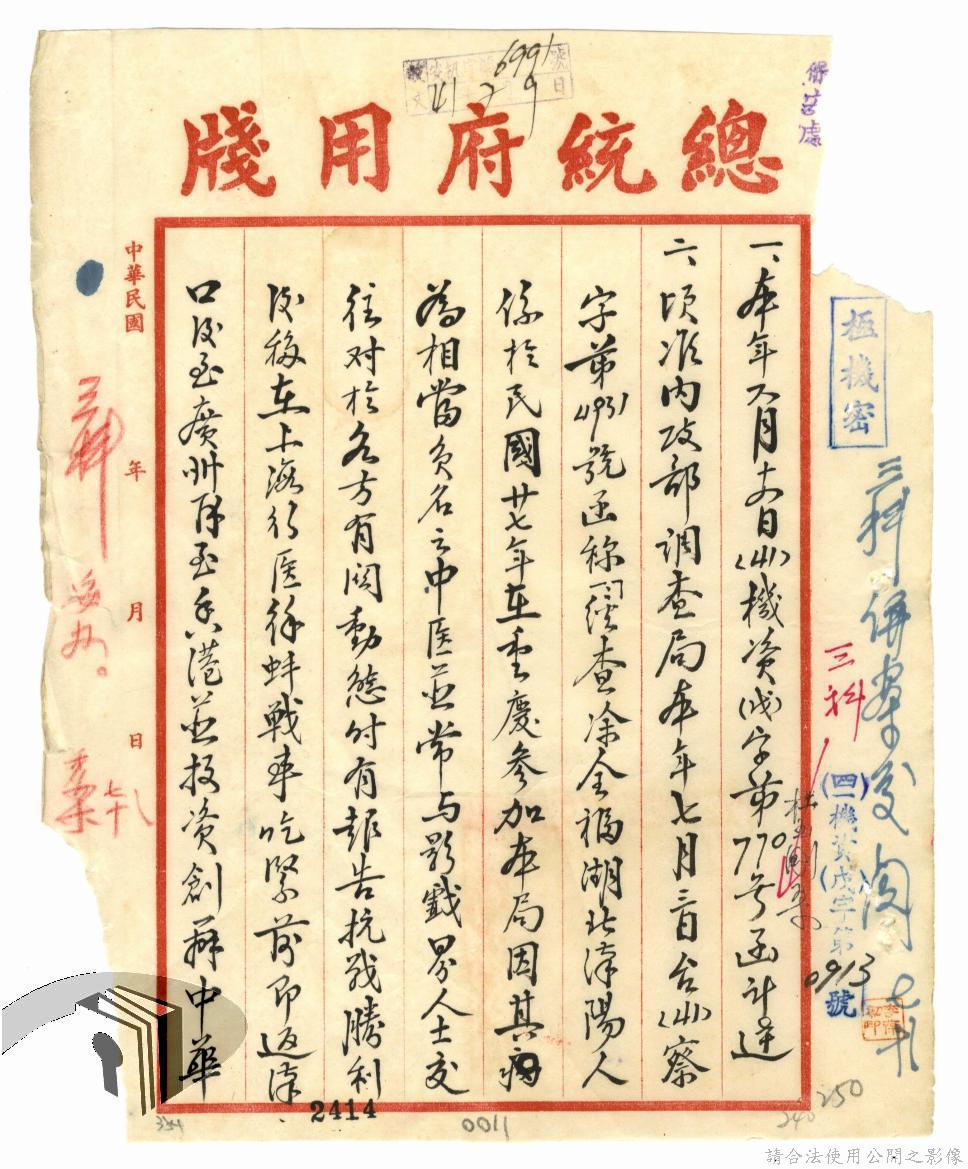 總統府用牋
極機密
(四一)機資戊字第0913號
三科
一、本年六月十六日(41)機資(戊)字第770号函計達
二、頃准內政部調查局本年七月三日台(41)察
字第4931號函称「經查涂全福湖北漢陽人
係於民國廿七年在重慶參加本局因其
為相當負名之中医並常与影戲界人士交
往对於各方有関動態时有報告抗战勝利
後移在上海行医徐蚌戰事吃緊前即返漢
口後至廣州後至香港並投资創辦中華
中華民國 年 月 日
三科
6991
41 7 9
2414
0011
240
250
請合法使用公開之影像